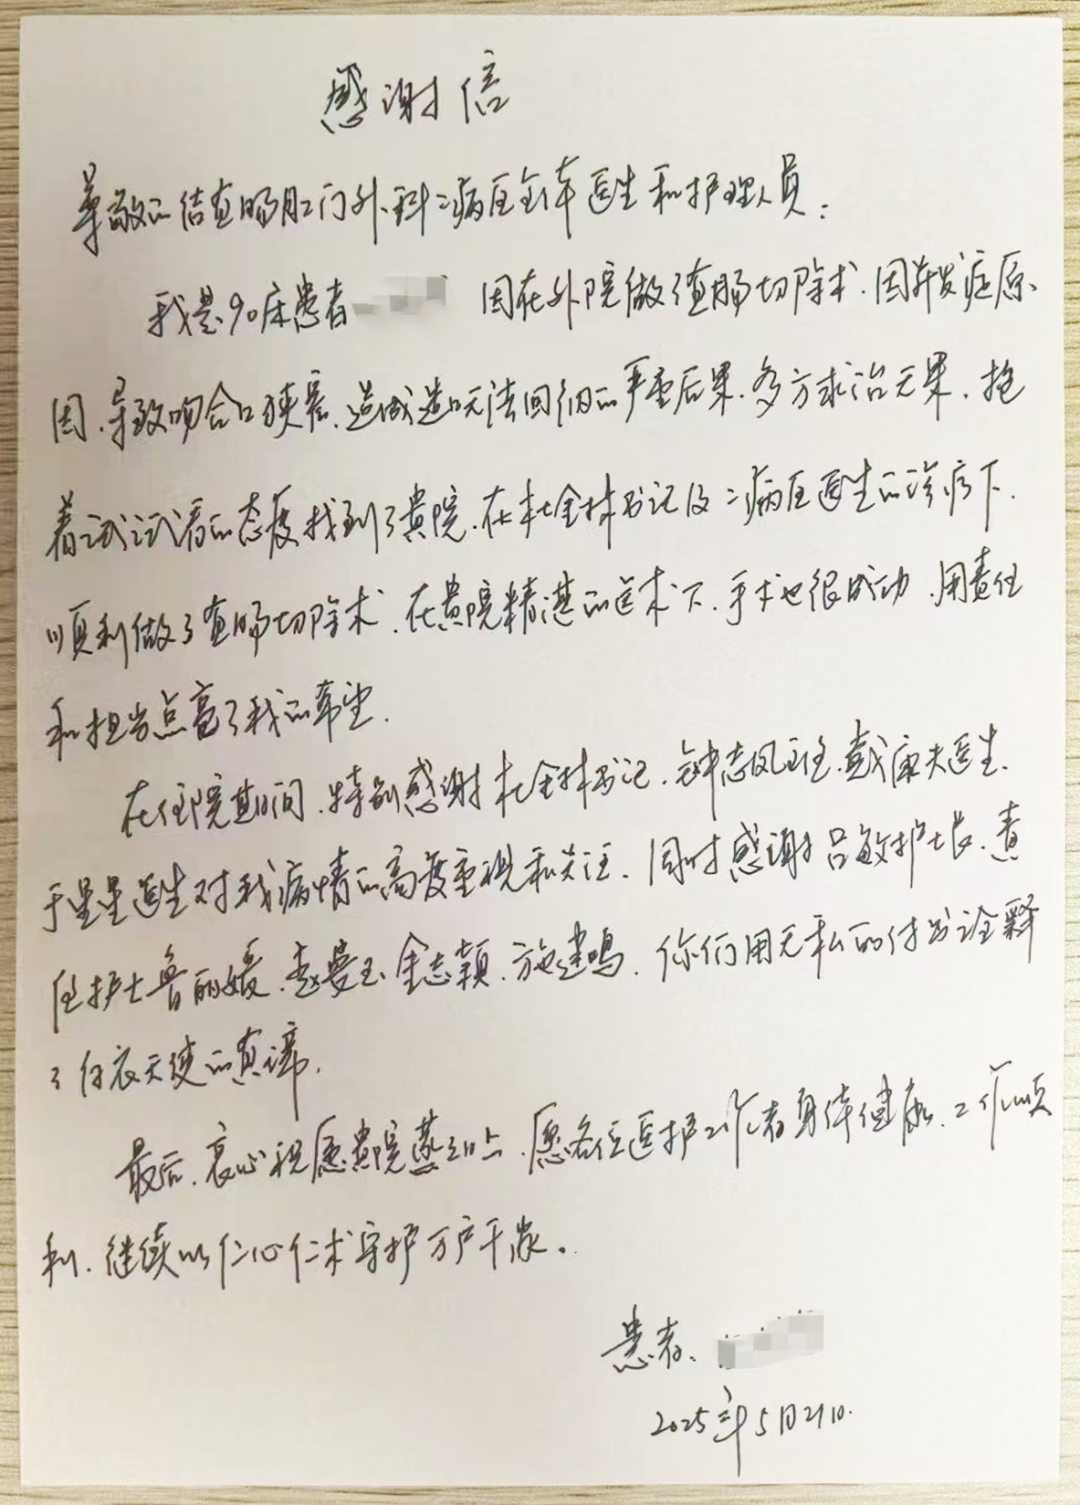 感谢信
尊敬的结直肠肛门外科二病区全体医生和护理人员:
我是90床患者 因在外院做了直肠切除术.因并发症原
因.导致吻合口狭窄.造成造口无法回纳的严重后果.多方求治无果.抱
着试试看的态度找到了贵院.在杜金林书记及二病区医生的诊疗下.
顺利做了直肠切除术.在贵院精湛的医术下.手术也很成功.用责任
和担当点亮了我的希望.
在住院期间.特别感谢杜金林书记.钟志凤主任.戴康夫医生.
于星星医生对我病情的高度重视和关注.同时感谢吕敏护士长.责
任护士鲁丽媛.赵要玉.金志颖.施建鸣.你们用无私的付出诠释
了白衣天使的真谛.
最后.衷心祝愿贵院蒸蒸日上.愿各位医护工作者身体健康.工作顺
利.继续以仁心仁术守护万户千家。
患者:
2025年5月21日.